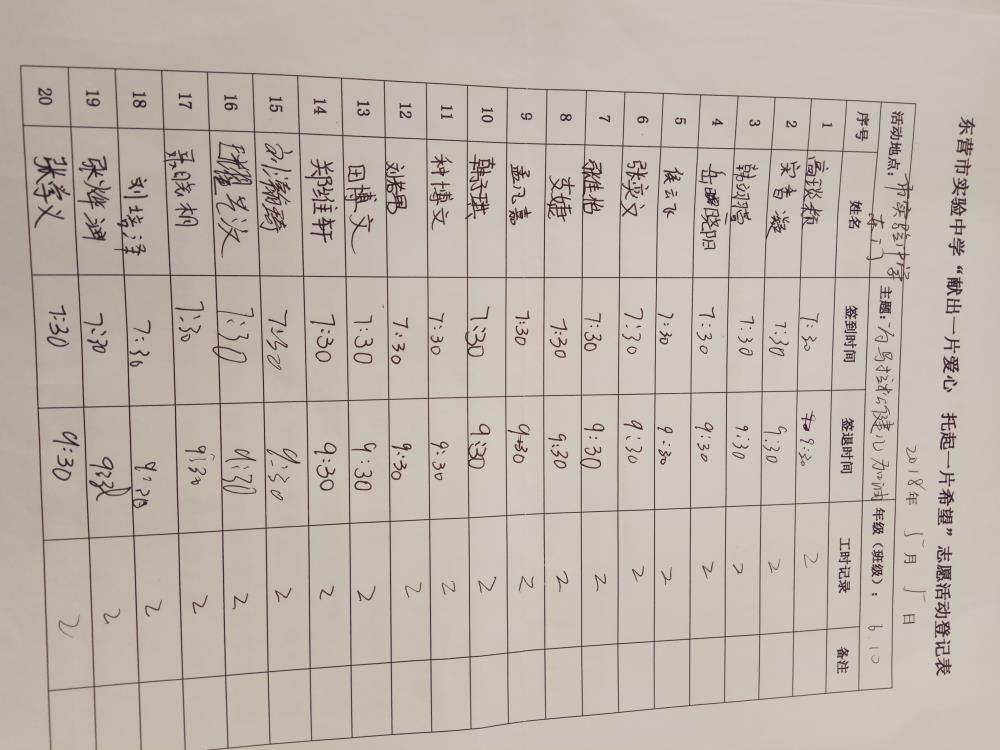 东营市实验中学“献出一片爱心 托起一片希望”志愿活动登记表
2018年 5月 5日
活动地点：市实验中学东门 主题：为马拉松健儿加油 年级（班级）：6.10
序号 姓名 签到时间 签退时间 工时记录 备注
1 高琰颖 7:30 9:30 2
2 宋香凝 7:30 9:30 2
3 韩羽萱 7:30 9:30 2
4 岳晓阳 7:30 9:30 2
5 徐云飞 7:30 9:30 2
6 张奕文 7:30 9:30 2
7 张佳怡 7:30 9:30 2
8 支婕 7:30 9:30 2
9 孟凡嘉 7:30 9:30 2
10 韩子琪 7:30 9:30 2
11 种博文 7:30 9:30 2
12 7:30 9:30 2
13 田博文 7:30 9:30 2
14 郑维轩 7:30 9:30 2
15 刘瀚琦 7:30 9:30 2
16 7:30 9:30 2
17 7:30 9:30 2
18 刘培泽 7:30 9:30 2
19 张烨润 7:30 9:30 2
20 张学义 7:30 9:30 2